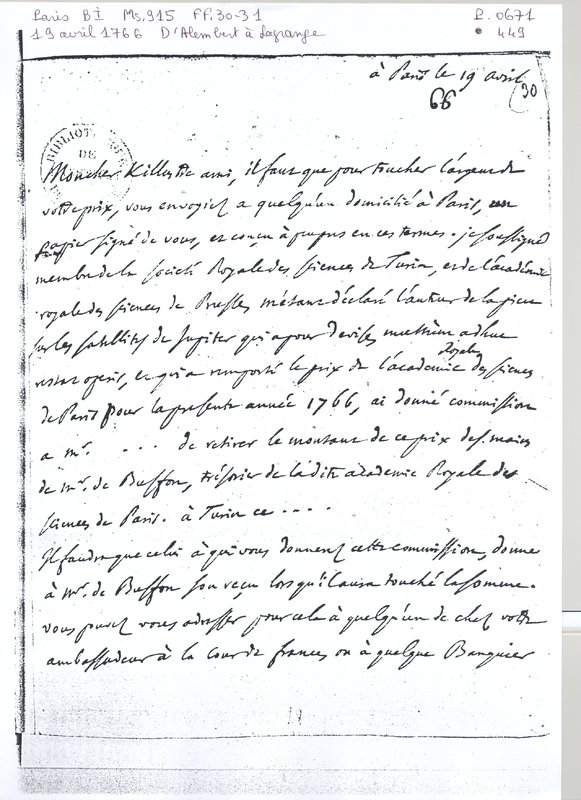 Paris BI Ms. 915 FF. 30-31
P. 0671
19 avril 1766 D'Alembert à Lagrange
449
à Paris le 19 avril
66
30
BIBLIOTHEQUE
DE
Mon cher & illustre ami, il faut que pour toucher l'argent de
votre prix, vous envoyiez a quelqu'un domicilié à Paris, un
papier signé de vous, et conçu à peu près en ces termes. je soussigné
membre de la société Royale des sciences de Turin, et de l'académie
royale des sciences de Prusse m'étant déclaré l'auteur de la piece
sur les satellites de Jupiter qui a pour devise multum adhuc
Royale
restat operis, et qui a remporté le prix de l'academie des sciences
de Paris pour la presente année 1766, ai donné commission
a mr. . . . de retirer le montant de ce prix des mains
de mr. de Buffon, trésorier de la dite academie Royale des
sciences de Paris. à Turin ce . . . .
Il faudra que celui à qui vous donnerez cette commission, donne
à mr. de Buffon son reçu lorsqu'il aura touché la somme.
vous pouvez vous adresser pour cela à quelqu'un de chez votre
ambassadeur à la cour de france, ou à quelque Banquier